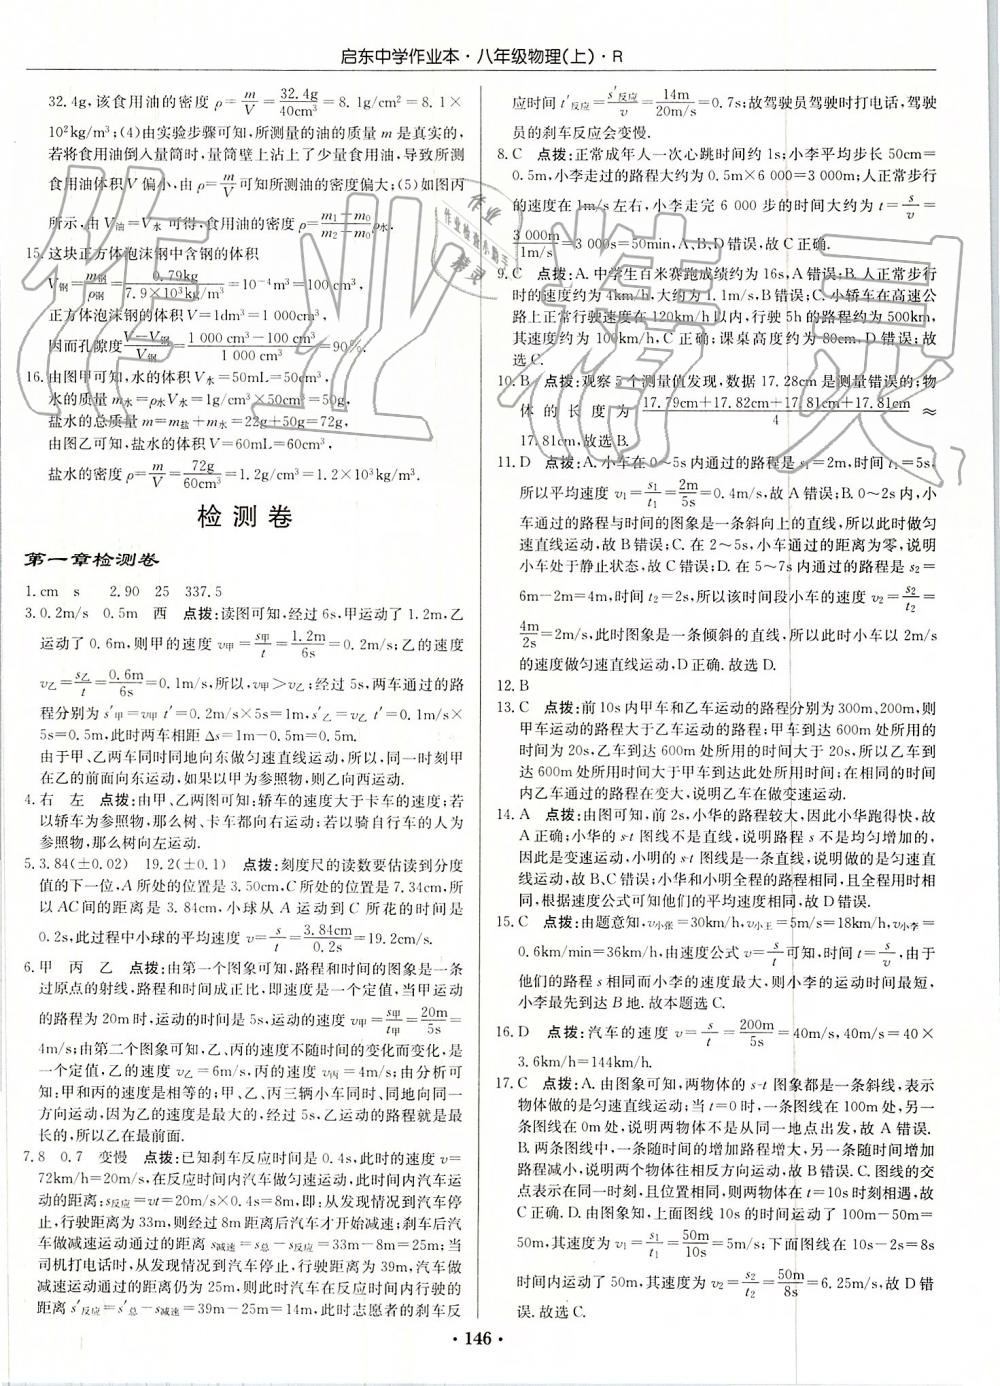 启东中学作业本·八年级物理(上)·R
32.4g,该食用油的密度ρ=m/V=32.4g/40cm³=8.1g/cm³=8.1×
10²kg/m³;(4)由实验步骤可知,所测量的油的质量m是真实的,
若将食用油倒入量筒时,量筒壁上沾上了少量食用油,导致所测
食用油体积V偏小,由ρ=m/V可知所测油的密度偏大;(5)如图丙
所示,由V油=V水可得,食用油的密度ρ=(m₁-m₀)/(m₂-m₀)ρ水.
15.这块正方体泡沫钢中含钢的体积
V钢=m钢/ρ钢=0.79kg/7.9×10³kg/m³=10⁻⁴m³=100cm³,
正方体泡沫钢的体积V=1dm³=1 000cm³,
因而孔隙度(V-V钢)/V=(1 000cm³-100cm³)/1 000cm³=90%.
16.由图甲可知,水的体积V水=50mL=50cm³,
水的质量m水=ρ水V水=1g/cm³×50cm³=50g,
盐水的总质量m=m盐+m水=22g+50g=72g,
由图乙可知,盐水的体积V=60mL=60cm³,
盐水的密度ρ=m/V=72g/60cm³=1.2g/cm³=1.2×10³kg/m³.
检测卷
第一章检测卷
1.cm s 2.90 25 337.5
3.0.2m/s 0.5m 西 点拨:读图可知,经过6s,甲运动了1.2m,乙
运动了0.6m,则甲的速度v甲=s甲/t=1.2m/6s=0.2m/s;乙的速度
v乙=s乙/t=0.6m/6s=0.1m/s,所以,v甲>v乙;经过5s,两车通过的路
程分别为s′甲=v甲t′=0.2m/s×5s=1m,s′乙=v乙t′=0.1m/s×
5s=0.5m,此时两车相距Δs=1m-0.5m=0.5m.
由于甲、乙两车同时同地向东做匀速直线运动,所以同一时刻甲
在乙的前面向东运动,如果以甲为参照物,则乙向西运动.
4.右 左 点拨:由甲、乙两图可知:轿车的速度大于卡车的速度;若
以轿车为参照物,那么树、卡车都向右运动;若以骑自行车的人为
参照物,那么树向左运动.
5.3.84(±0.02) 19.2(±0.1) 点拨:刻度尺的读数要估读到分度
值的下一位,A所处的位置是3.50cm,C所处的位置是7.34cm,所
以AC间的距离是3.84cm,小球从A运动到C所花的时间是
0.2s,此过程中小球的平均速度v=s/t=3.84cm/0.2s=19.2cm/s.
6.甲 丙 乙 点拨:由第一个图象可知,路程和时间的图象是一条
过原点的射线,路程和时间成正比,即速度是一个定值,当甲运动
的路程为20m时,运动的时间是5s,运动的速度v甲=s甲/t甲=20m/5s=
4m/s;由第二个图象可知,乙、丙的速度不随时间的变化而变化,是
一个定值,乙的速度v乙=6m/s,丙的速度v丙=4m/s;由分析可
知:甲和丙的速度是相等的;甲、乙、丙三辆小车同时、同地向同一
方向运动,因为乙的速度是最大的,经过5s,乙运动的路程就是最
长的,所以乙在最前面.
7.8 0.7 变慢 点拨:已知刹车反应时间是0.4s,此时的速度v=
72km/h=20m/s,在反应时间内汽车做匀速运动,此时间内汽车运
动的距离:s反应=vt=20m/s×0.4s=8m,即:从发现情况到汽车停
止,行驶距离为33m,则经过8m距离后汽车才开始减速;刹车后汽
车做减速运动通过的距离s减速=s总-s反应=33m-8m=25m;当
司机打电话时,从发现情况到汽车停止,行驶距离为39m,汽车做
减速运动通过的距离仍为25m,则此时汽车在反应时间内行驶的
距离s′反应=s′总-s减速=39m-25m=14m,此时志愿者的刹车反
应时间t′反应=s′反应/v=14m/20m/s=0.7s;故驾驶员驾驶时打电话,驾驶
员的刹车反应会变慢.
8.C 点拨:正常成年人一次心跳时间约1s;小李平均步长50cm=
0.5m,小李走过的路程大约为0.5m×6 000=3 000m;人正常步行
的速度在1m/s左右,小李走完6 000步的时间大约为t=s/v=
3 000m/1m/s=3 000s=50min,A、B、D错误,故C正确.
9.C 点拨:A.中学生百米赛跑成绩约为16s,A错误;B.人正常步行
时的速度约为4km/h,大约为1m/s,B错误;C.小轿车在高速公
路上正常行驶速度在120km/h以内,行驶5h的路程约为500km,
其速度约为100km/h,C正确;课桌高度约为80cm,D错误;故
选C.
10.B 点拨:观察5个测量值发现,数据17.28cm是测量错误的;物
体的长度为(17.79cm+17.82cm+17.81cm+17.81cm)/4≈
17.81cm,故选B.
11.D 点拨:A.小车在0~5s内通过的路程是s₁=2m,时间t₁=5s,
所以平均速度v₁=s₁/t₁=2m/5s=0.4m/s,故A错误;B.0~2s内,小
车通过的路程与时间的图象是一条斜向上的直线,所以此时做匀
速直线运动,故B错误;C.在2~5s,小车通过的距离为零,说明
小车处于静止状态,故C错误;D.在5~7s内通过的路程是s₂=
6m-2m=4m,时间t₂=2s,所以该时间段小车的速度v₂=s₂/t₂=
4m/2s=2m/s,此时图象是一条倾斜的直线,所以此时小车以2m/s
的速度做匀速直线运动,D正确.故选D.
12.B
13.C 点拨:前10s内甲车和乙车运动的路程分别为300m、200m,则
甲车运动的路程大于乙车运动的路程;甲车到达600m处所用的
时间为20s,乙车到达600m处所用的时间大于20s,所以乙车到
达600m处所用时间大于甲车到达此处的时间;在相同的时间
内乙车通过的路程在变大,说明乙车在做变速运动.
14.A 点拨:由图可知,前2s,小华的路程较大,因此小华跑得快,故
A正确;小华的s-t图线不是直线,说明路程s不是均匀增加的,
因此是变速运动,小明的s-t图线是一条直线,说明做的是匀速直
线运动,故B、C错误;小华和小明全程的路程相同,且全程用时相
同,根据速度公式可知他们的平均速度相同,故D错误.
15.C 点拨:由题意知,v小张=30km/h,v小王=5m/s=18km/h,v小李=
0.6km/min=36km/h,由速度公式v=s/t可知,时间t=s/v,由于
他们的路程s相同而小李的速度最大,则小李的运动时间最短,
小李最先到达B地.故本题选C.
16.D 点拨:汽车的速度v=s/t=200m/5s=40m/s,40m/s=40×
3.6km/h=144km/h.
17.C 点拨:A.由图象可知,两物体的s-t图象都是一条斜线,表示
物体做的是匀速直线运动;当t=0时,一条图线在100m处,另
一条为0,说明两物体不是从同一地点出发,故A错误.
B.两条图线中,一条随时间的增加路程增大,一条随时间的增加
路程减小,说明两个物体往相反方向运动,故B错误.C.图线的交
点表示在同一时刻,且位置相同,即两物体在t=10s时刻相遇,故
C正确.D.由图象知,上面图线10s的时间运动了100m-50m=
50m,其速度为v₁=s₁/t₁=50m/10s=5m/s;下面图线在10s-2s=8s
时间内运动了50m,其速度为v₂=s₂/t₂=50m/8s=6.25m/s,故D错
误.故选C.
·146·
作业精灵